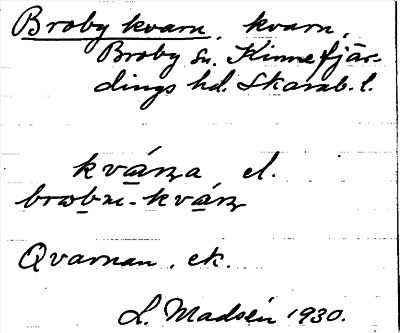 Broby kvarn, kvarn,
Broby sn. Kinnefjär-
dings hd. Skarab. l.
kvánₐa el.
Qvarnan, ek.
L. Madsén 1930.